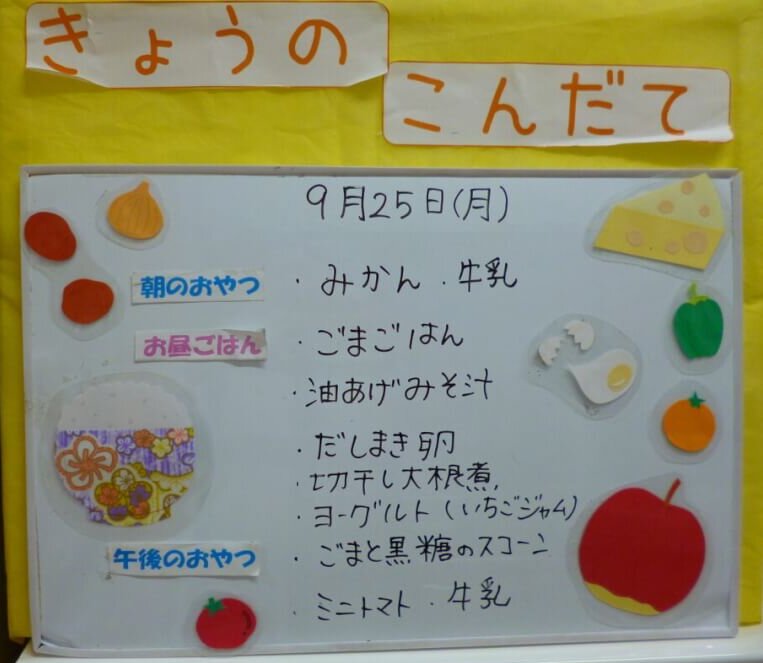 きょうの
こんだて
9月25日(月)
朝のおやつ ・みかん ・牛乳
お昼ごはん ・ごまごはん
・油あげみそ汁
・だしまき卵
・切干し大根煮
・ヨーグルト(いちごジャム)
午後のおやつ ・ごまと黒糖のスコーン
・ミニトマト・牛乳